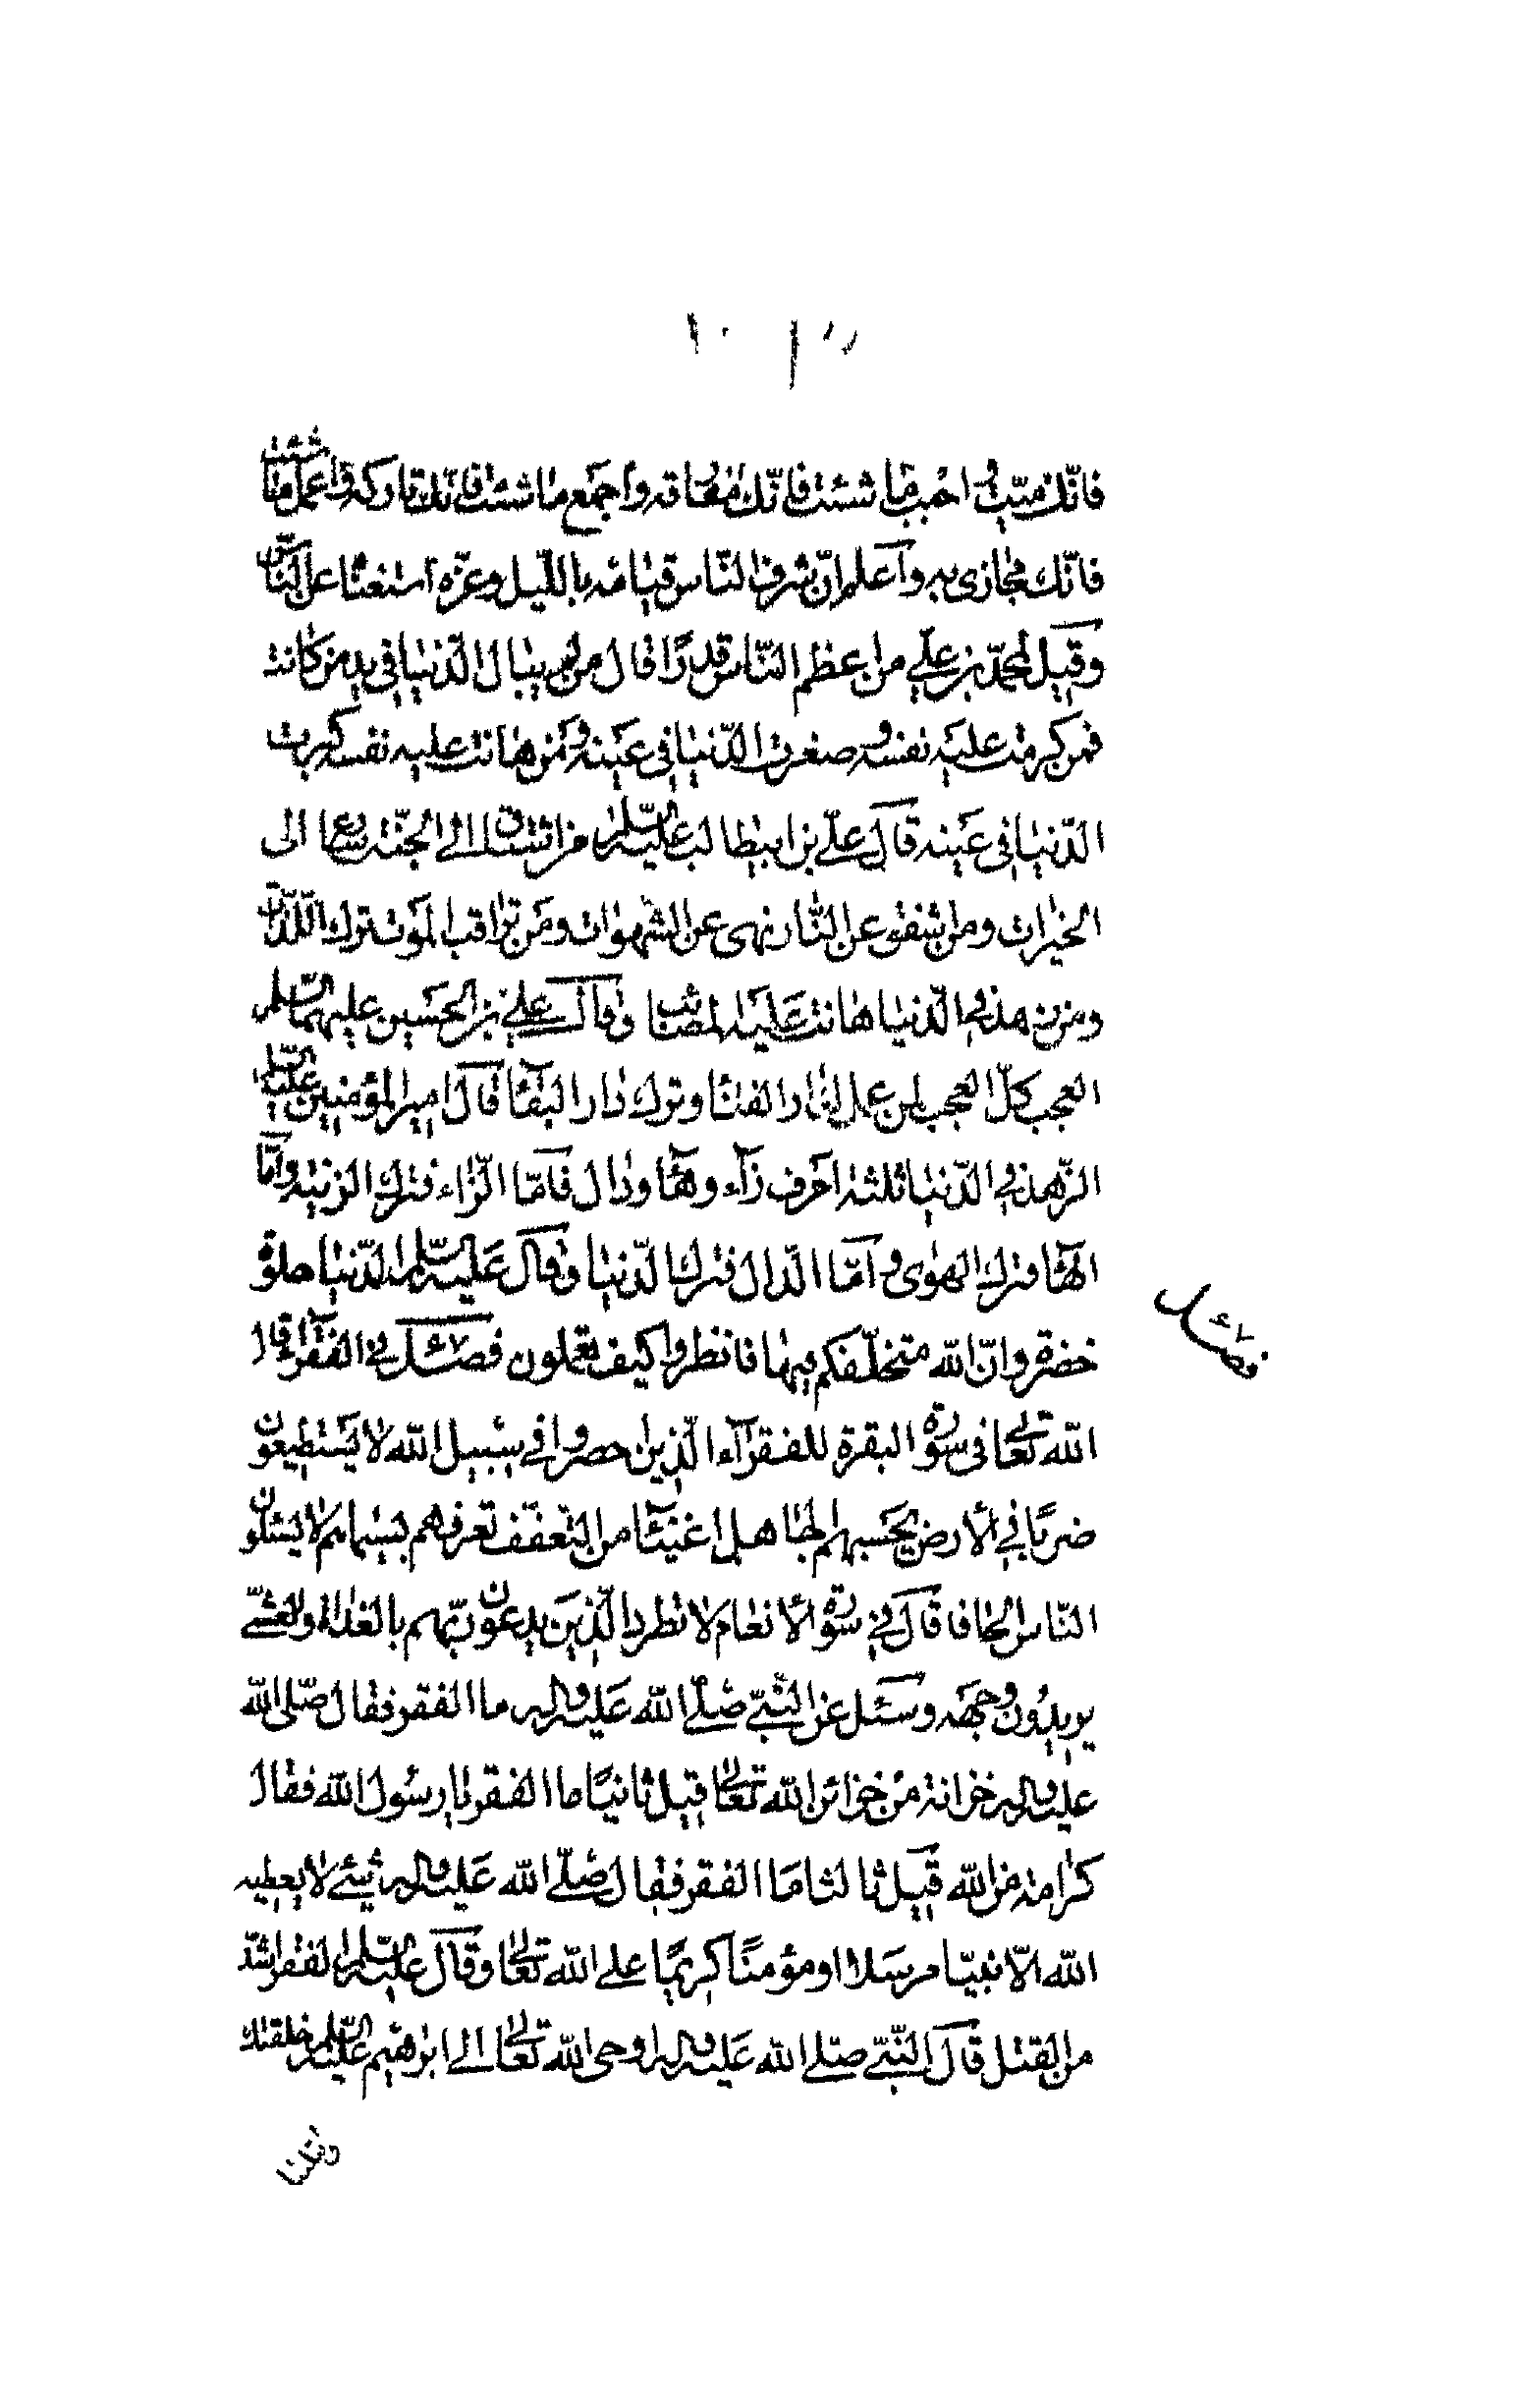 ١٠
فانّك ميّت واحبب ما شئت فانّك مفارقه واجمع ما شئت فانّك تاركه واعمل ما شئت
فانّك مجازى به وآعلم انّ شرف النّاس قيامه بالليل وعزّه استغناءه عن النّاس
وقيل لمحمّد بن علي من اعظم النّاس قدرًا قال من لم يبال الدّنيا في يد من كانت
فمن كرمت عليه نفسه صغرت الدّنيا في عينه ومن هانت عليه نفسه كبرت
الدّنيا في عينه قال عليّ بن ابيطالب عليه السّلم من اشتاق الى الجنّة سارع الى
الخيرات ومن اشفق عن النّار نهى عن الشّهوات ومن تراقب الموت ترك اللّذّات
ومن زهد في الدّنيا هانت عليه المصائب وقال علي بن الحسين عليهما السّلم
العجب كلّ العجب لمن عمل لدار الفنآء وترك دار البقآء قال امير المؤمنين عليه السّلم
الزّهد في الدّنيا ثلثة احرف زآء وهآء ودال فآمّا الزّاء فترك الزينة وآمّا
الهآء فترك الهوى وآمّا الدّال فترك الدّنيا وقال عليه السّلم الدّنيا حلوة
خضرة وانّ الله متخلّفكم فيها فانظروا كيف تعملون فصــل في الفقرآء قال
الله تعالى في سورة البقرة للفقرآء الّذين احصروا في سبيل الله لا يستطيعون
ضربًا في الأرض يحسبهم الجاهل اغنيآء من التعفّف تعرفهم بسيماهم لا يسئلون
النّاس الحافا قال في سورة الأنعام لا تطرد الّذين يدعون ربّهم بالغداة والعشيّ
يريدون وجهه وسئل عن النّبيّ صلّى الله عليه واله ما الفقر فقال صلّى الله
عليه واله خزانة من خزائن الله تعالى قيل ثانيًا ما الفقر يا رسول الله فقال
كرامة من الله قيل ثالثا ما الفقر فقال صلّى الله عليه واله شيئ لا يعطيه
الله الّا نبيّا مرسلا او مؤمنًا كريمًا على الله تعالى وقال عليه السّلم الفقر اشدّ
من القتل قال النّبيّ صلّى الله عليه واله اوحى الله تعالى الى ابرهيم عليه السّلم خلقتك
فصــل